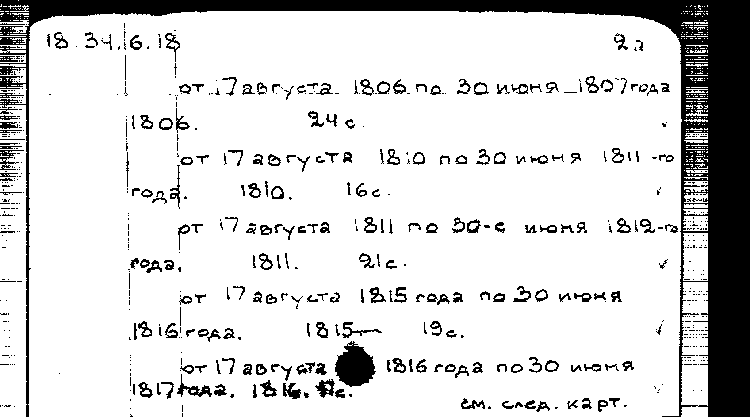 18.34.6.18 2л
от 17 августа 1806 по 30 июня 1807 года
1806. 24 с.
от 17 августа 1810 по 30 июня 1811-го
года. 1810. 16 с.
от 17 августа 1811 по 30-е июня 1812-го
года. 1811. 21 с.
от 17 августа 1815 года по 30 июня
1816 года. 1815 — 19 с.
от 17 августа 1816 года по 30 июня
1817 года. 1816.
см. след. карт.